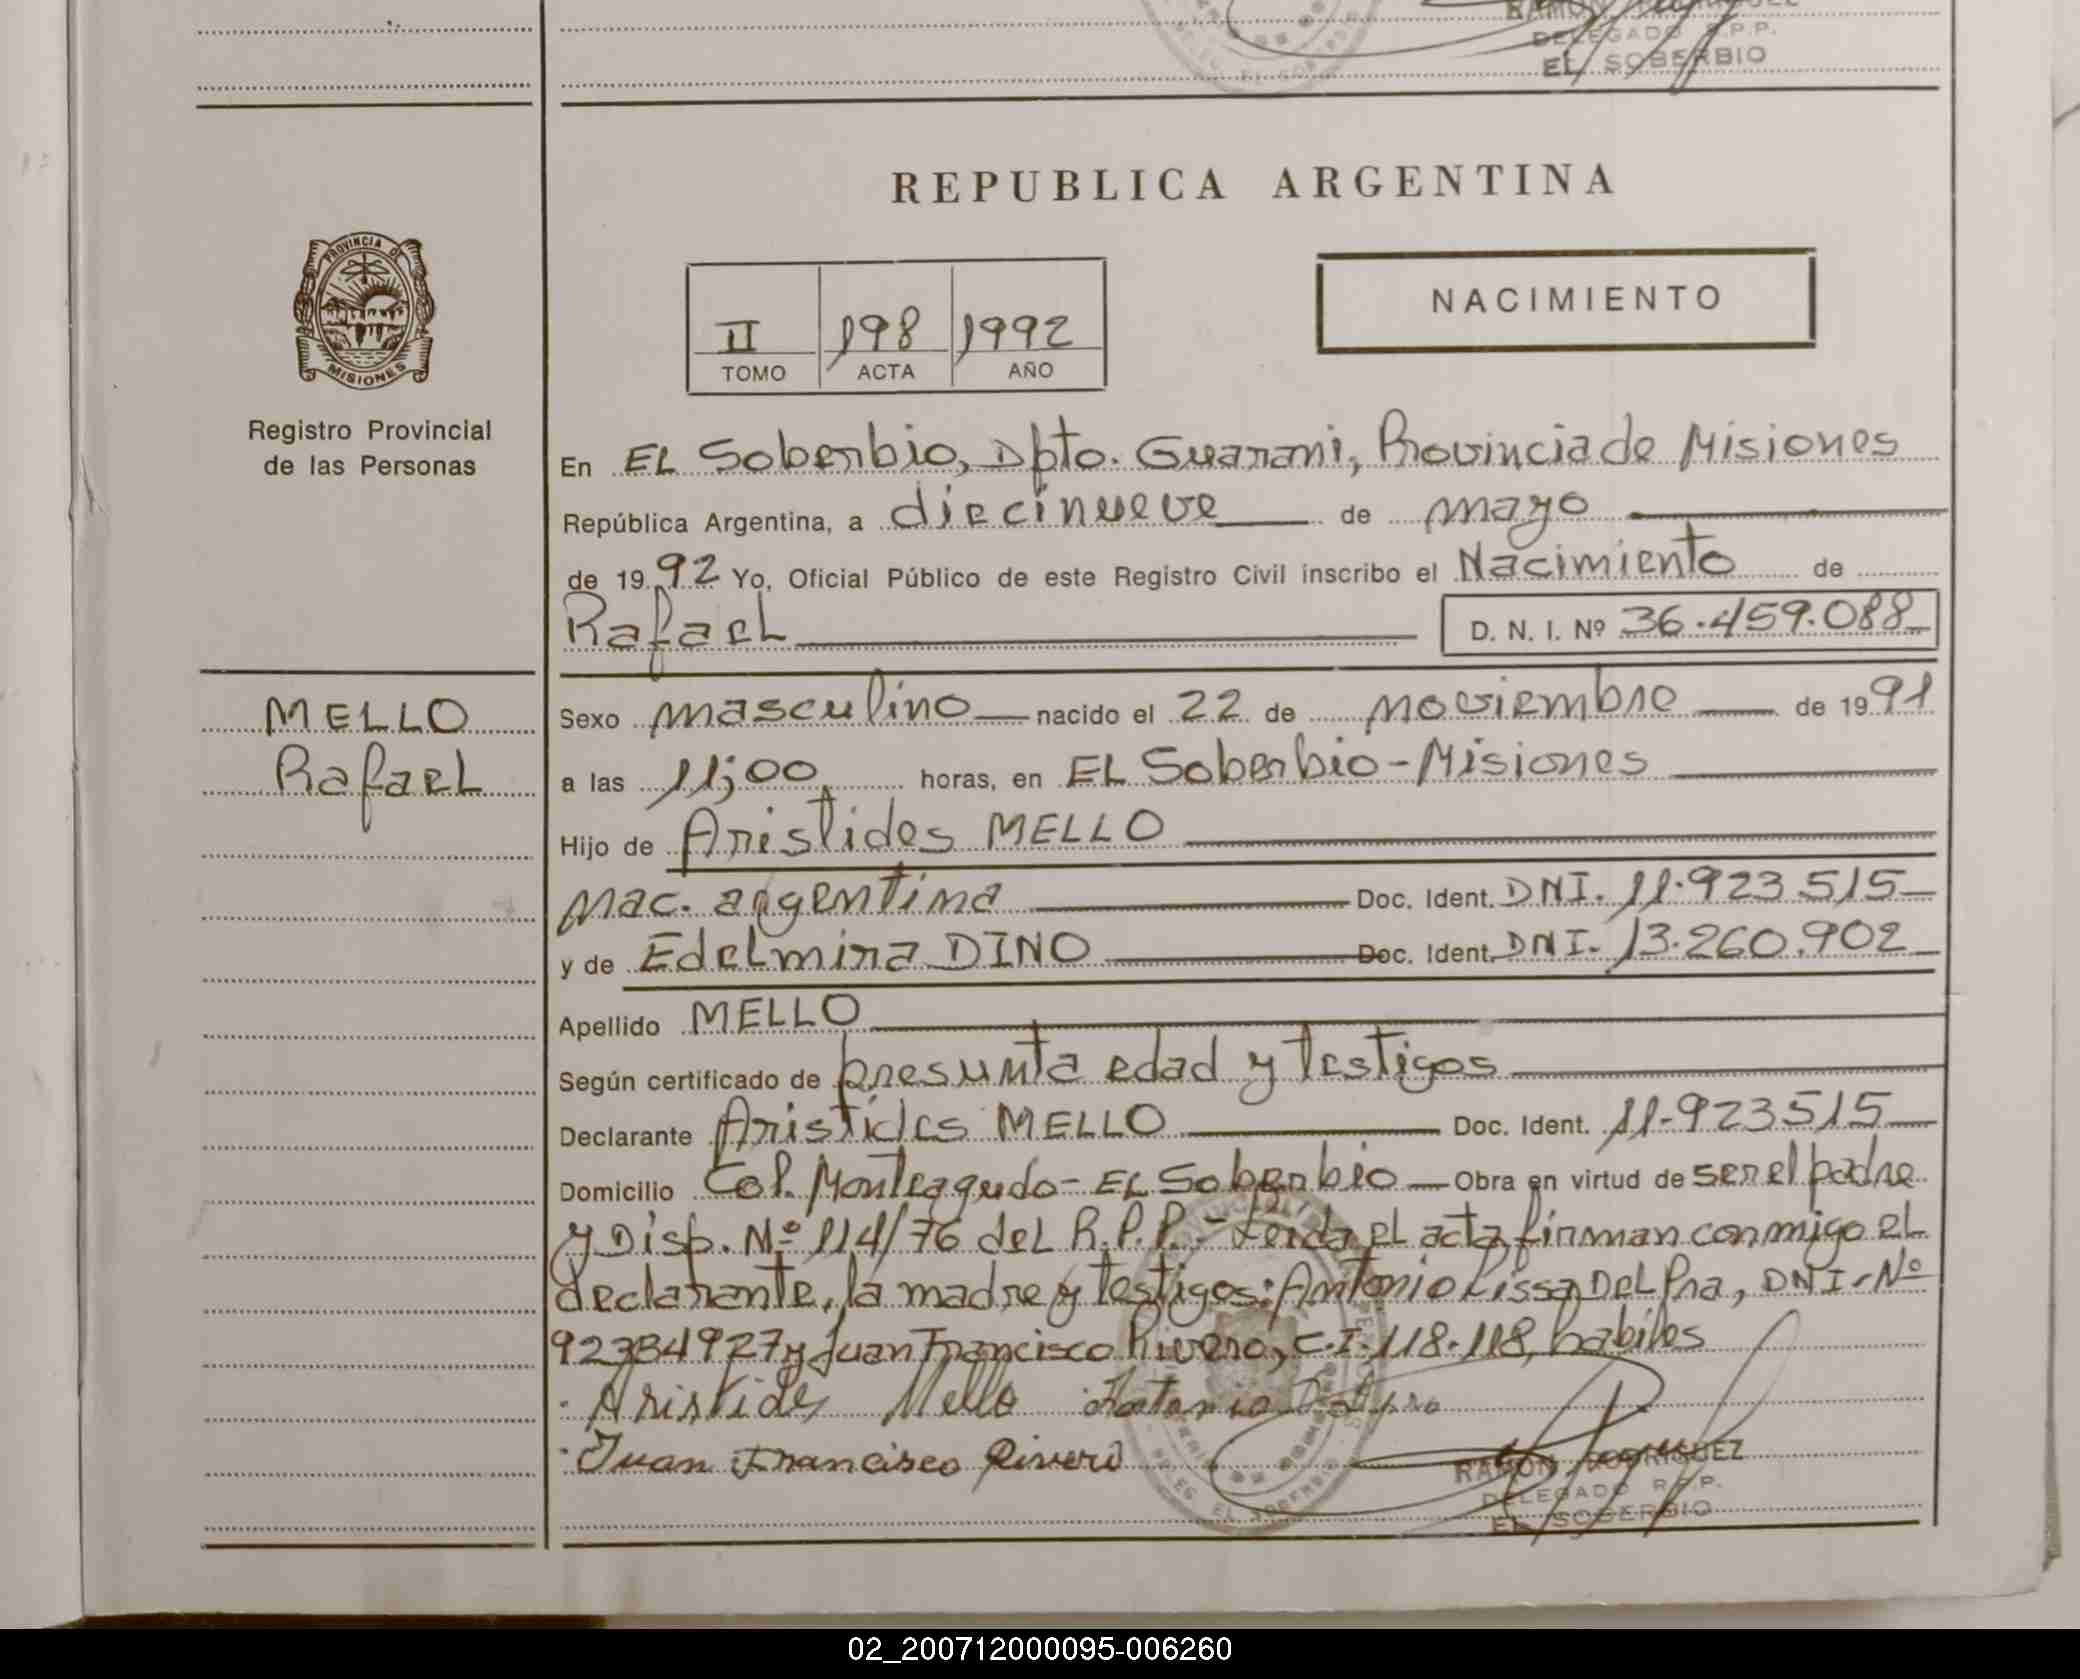 DELEGADO R.P.P.
EL SOBERBIO
REPUBLICA ARGENTINA
PROVINCIA DE
MISIONES
Registro Provincial
de las Personas
II 198 1992
TOMO ACTA AÑO
NACIMIENTO
En EL Soberbio, Dpto. Guarani, Provincia de Misiones
República Argentina, a diecinueve de mayo
de 1992 Yo, Oficial Público de este Registro Civil inscribo el Nacimiento de
Rafael D. N. I. Nº 36.459.088
MELLO
Rafael
Sexo masculino nacido el 22 de noviembre de 1991
a las 11;00 horas, en EL Soberbio-Misiones
Hijo de Aristides MELLO
nac. argentina Doc. Ident. DNI. 11.923.515
y de Edelmira DINO Doc. Ident. DNI. 13.260.902
Apellido MELLO
Según certificado de presunta edad y testigos
Declarante Aristides MELLO Doc. Ident. 11.923515
Domicilio Col. Monteagudo- EL Soberbio Obra en virtud de ser el padre
y Disp. Nº 114/76 del R.P.P.- Leida el acta, firman conmigo el
declarante, la madre y testigos: Antonio Lissa Del Pra, DNI-Nº
92334927 y Juan Francisco Rivero, C.I. 118.118, habiles
Aristides Mello
Juan Francisco Rivero
RAMON RODRIGUEZ
DELEGADO R.P.P.
EL SOBERBIO
02_200712000095-006260